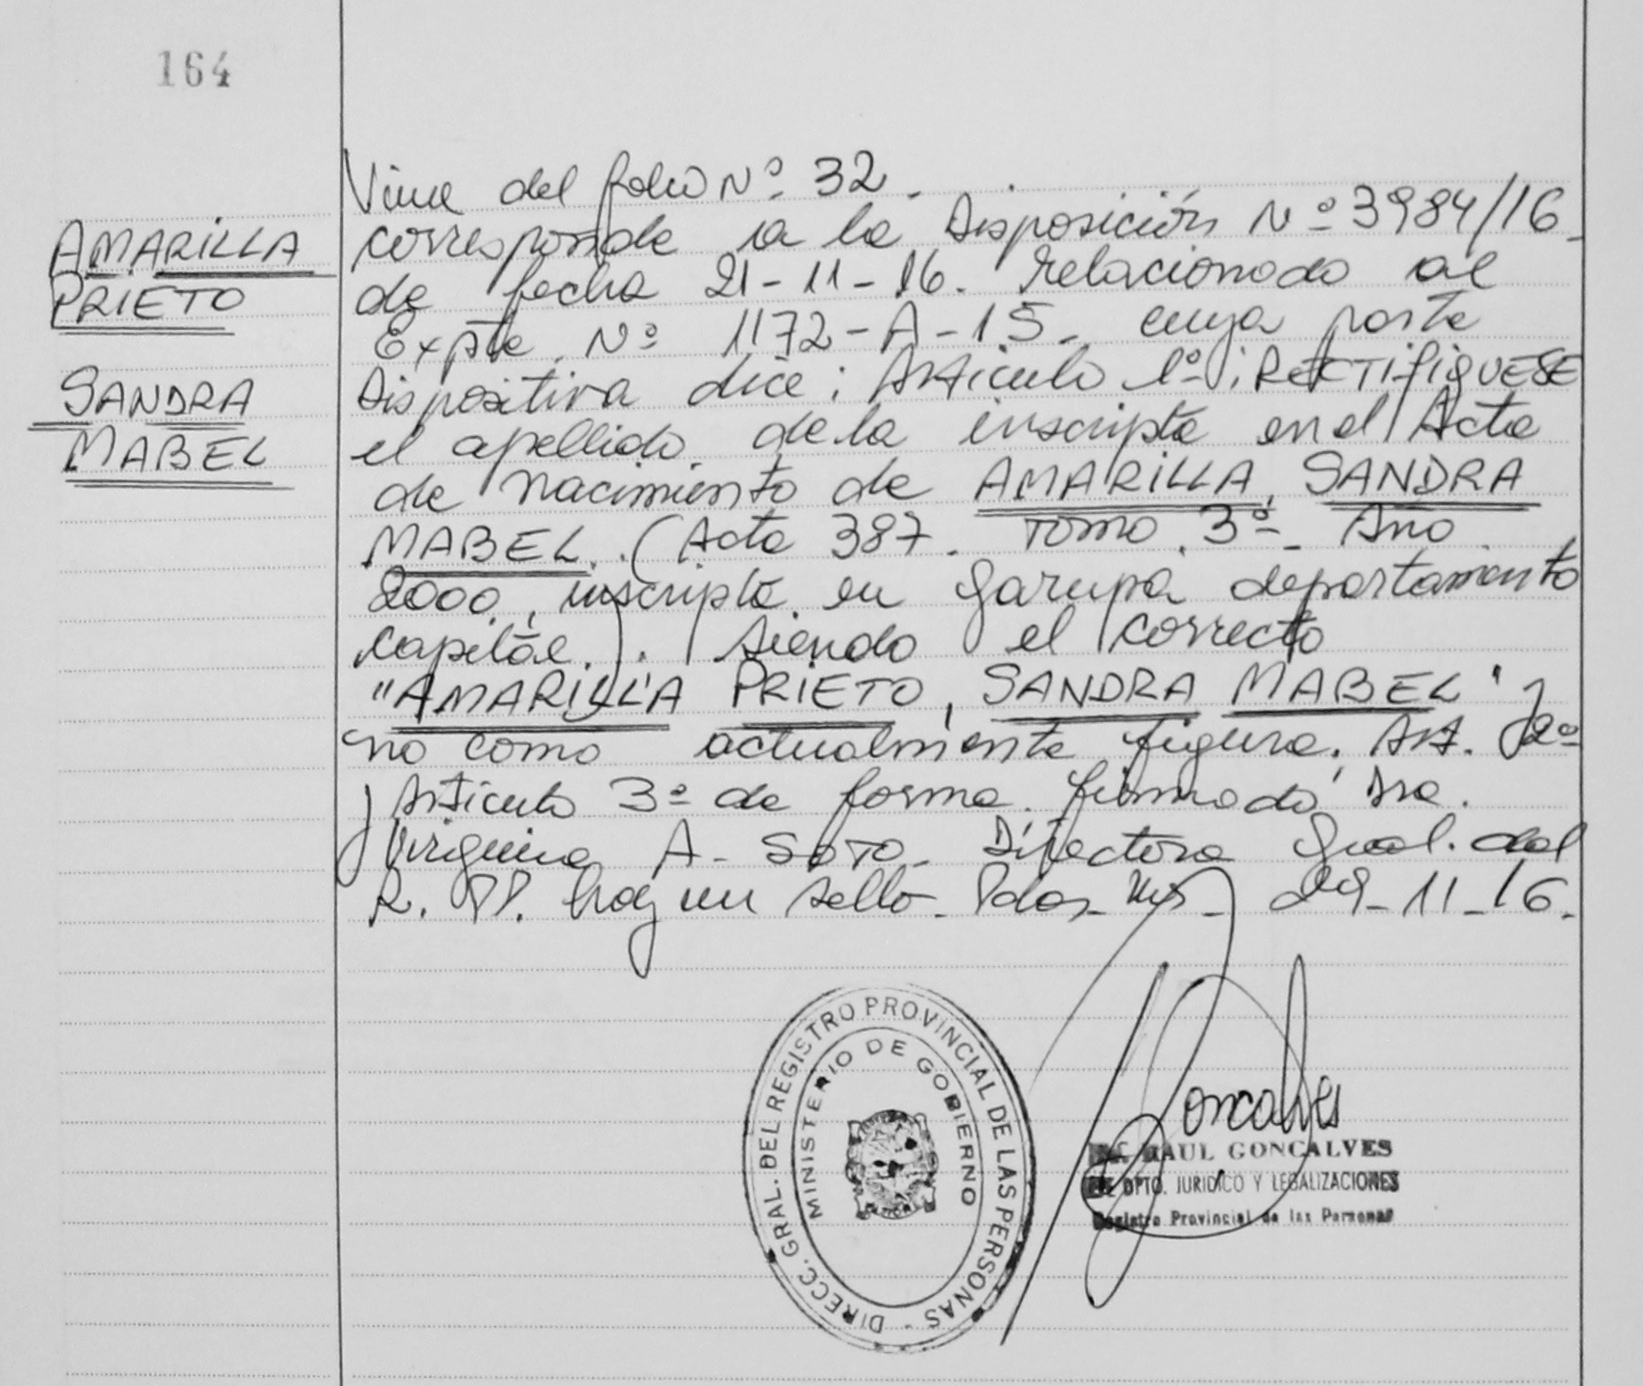 164
AMARILLA
PRIETO
SANDRA
MABEL
Viene del folio Nº 32.
corresponde a la Disposición Nº 3984/16
de fecha 21-11-16. relacionado al
Expte. Nº 1172-A-15. cuya parte
Dispositiva dice: Articulo 1º: RECTIFIQUESE
el apellido de la inscripta en el Acta
de nacimiento de AMARILLA, SANDRA
MABEL. (Acta 387. Tomo. 3º- Año
2000, inscripta en Garupa departamento
Capital.). Siendo el correcto
"AMARILLA PRIETO, SANDRA MABEL" y
no como actualmente figura. Art. 2º
y Articulo 3º de forma. firmado Dra.
Virginia A. SOTO. Directora Gral. del
R. PP. hay un sello. Pdas. Mnes. 29-11-16.
DIRECC. GRAL. DEL REGISTRO PROVINCIAL DE LAS PERSONAS -
MINISTERIO DE GOBIERNO
Goncalves
RAUL GONCALVES
DPTO. JURIDICO Y LEGALIZACIONES
Registro Provincial de las Personas